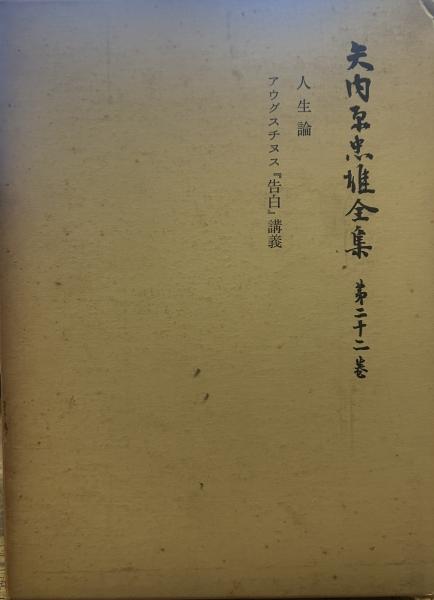 矢内原忠雄全集 第二十二巻
人生論
アウグスチヌス『告白』講義